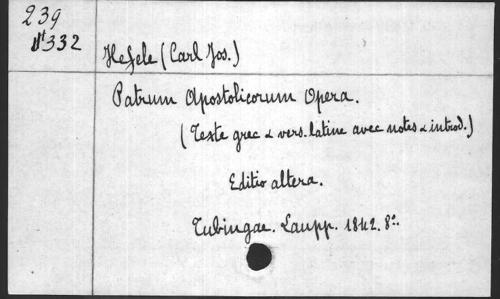 239
332
Hefele (Carl Jos.)
Patrum Apostolicorum Opera.
(Texte grec & vers. latine avec notes & introd.)
Editio altera.
Tubingae. Laupp. 1842. 8º.